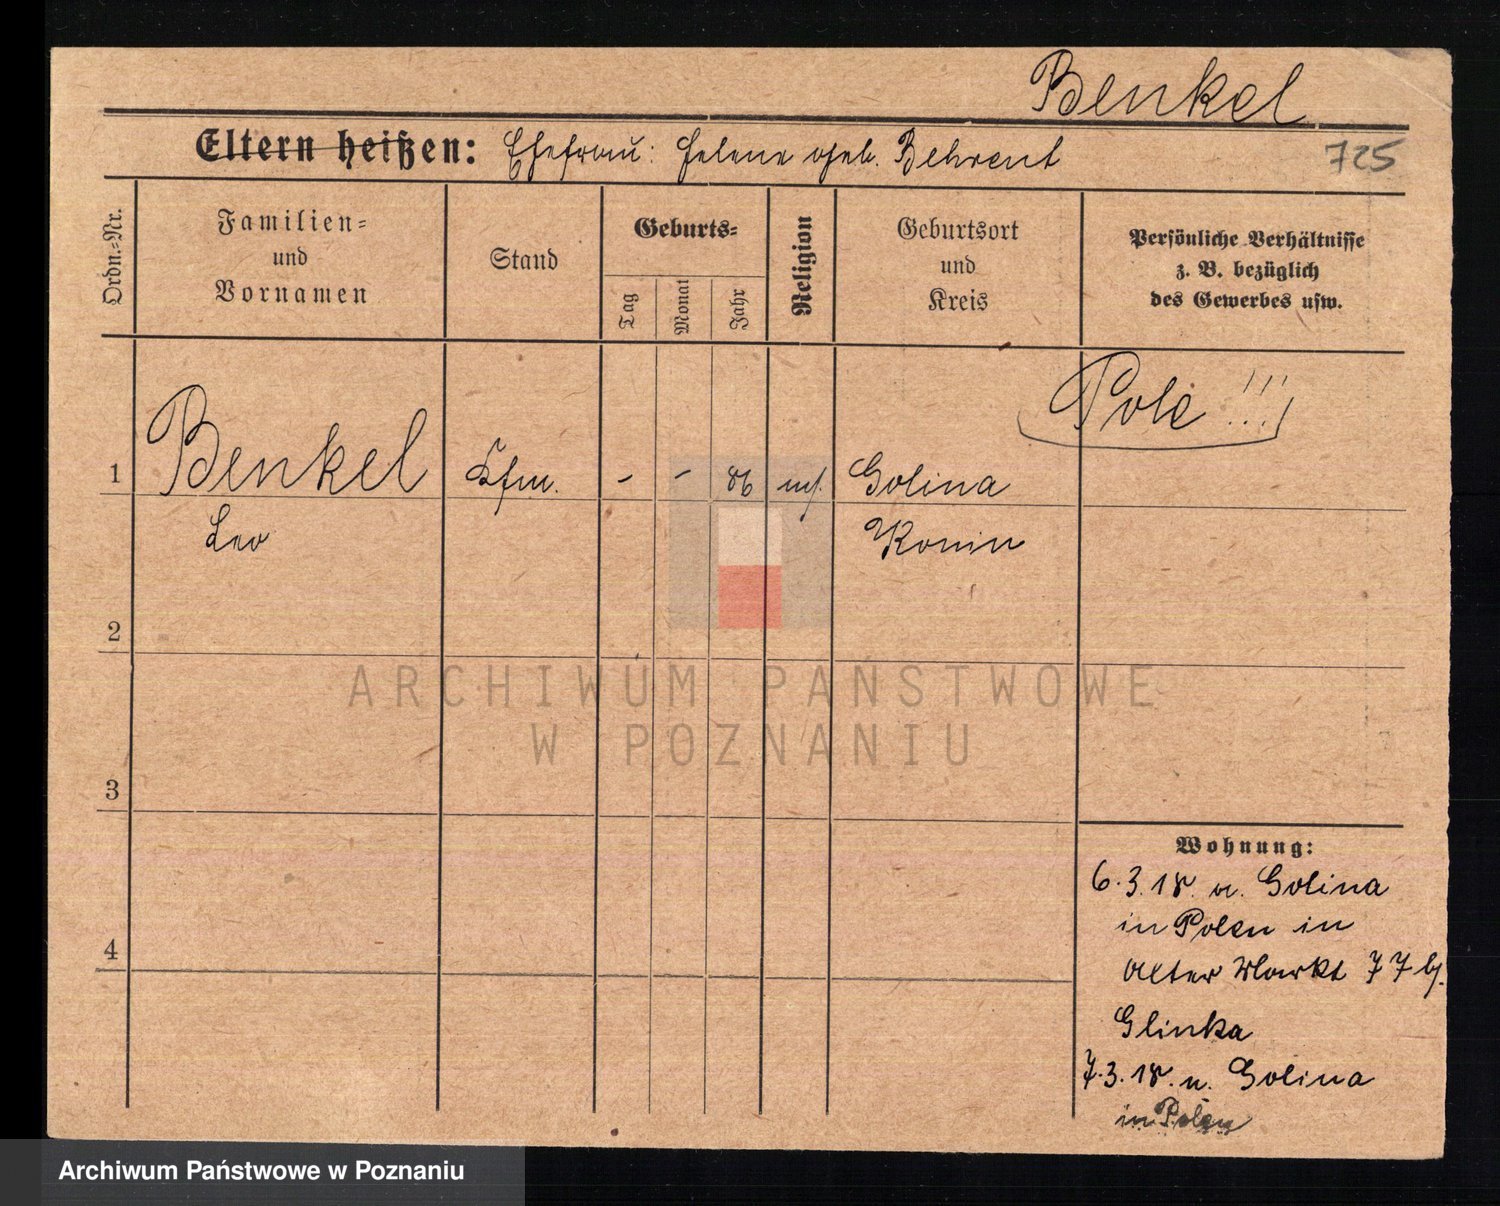 Benkel
Eltern heißen: Ehefrau: Helene geb. Behrent
725
Ordn.=Nr.
Familien=
und
Vornamen
Stand
Geburts=
Tag
Monat
Jahr
Religion
Geburtsort
und
Kreis
Persönliche Verhältnisse
z. B. bezüglich
des Gewerbes usw.
Pole !!!
1 Benkel Kfm. - - 86 Golina
Leo Konin
2
3
4
Wohnung:
6.3.18. v. Golina
in Polen in
Alter Markt 77 bj.
Glinka
7.3.18. n. Golina
in Polen
ARCHIWUM PAŃSTWOWE
W POZNANIU
Archiwum Państwowe w Poznaniu